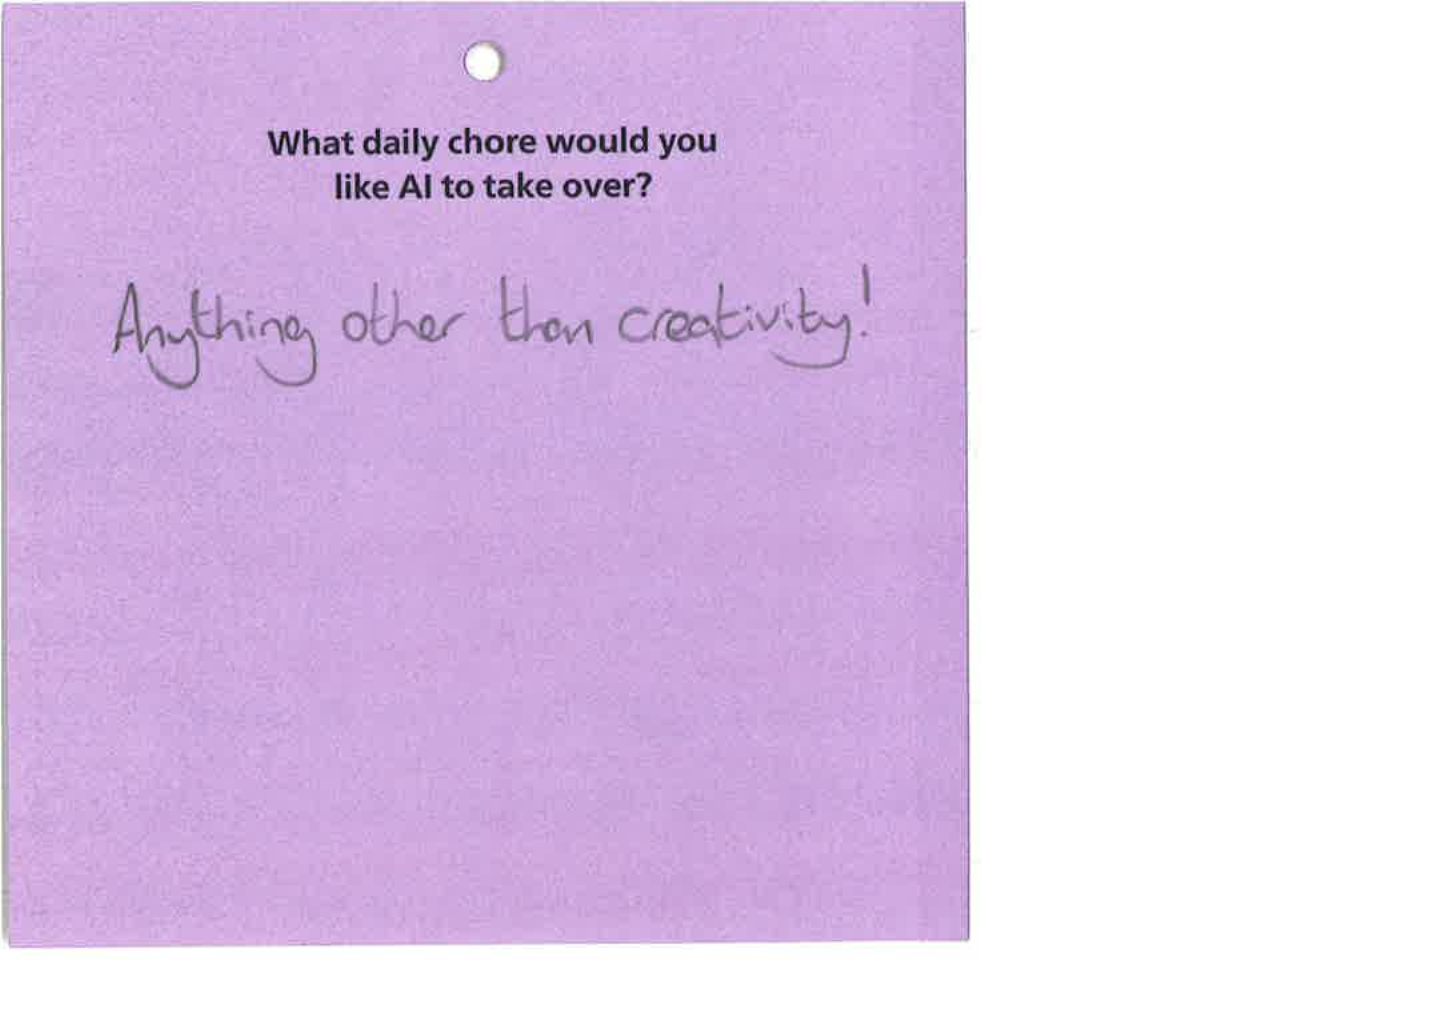 What daily chore would you
like AI to take over?
Anything other than creativity!